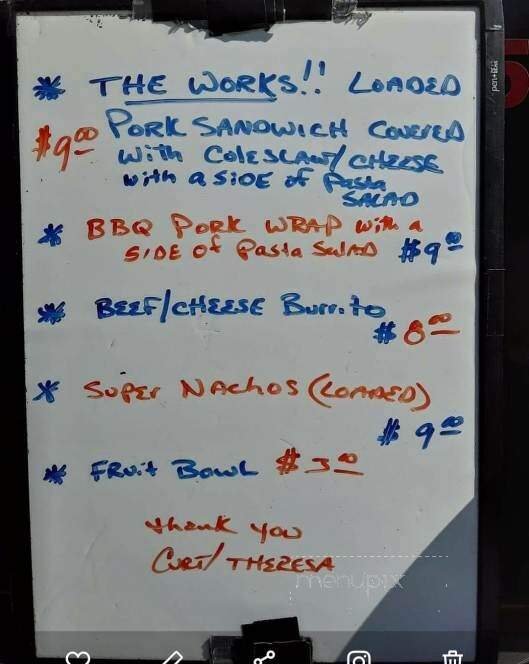 * THE WORKS!! LOADED
$9.00 PORK SANDWICH COVERED
with COLESLAW/CHEESE
with a SIDE of Pasta
SALAD
* BBQ PORK WRAP with a
SIDE of Pasta SALAD $9.00
* BEEF/CHEESE Burrito
$8.00
* SUPER NACHOS (LOADED)
$9.00
* FRUit BOWL $3.00
thank you
CURT/THERESA
menupix